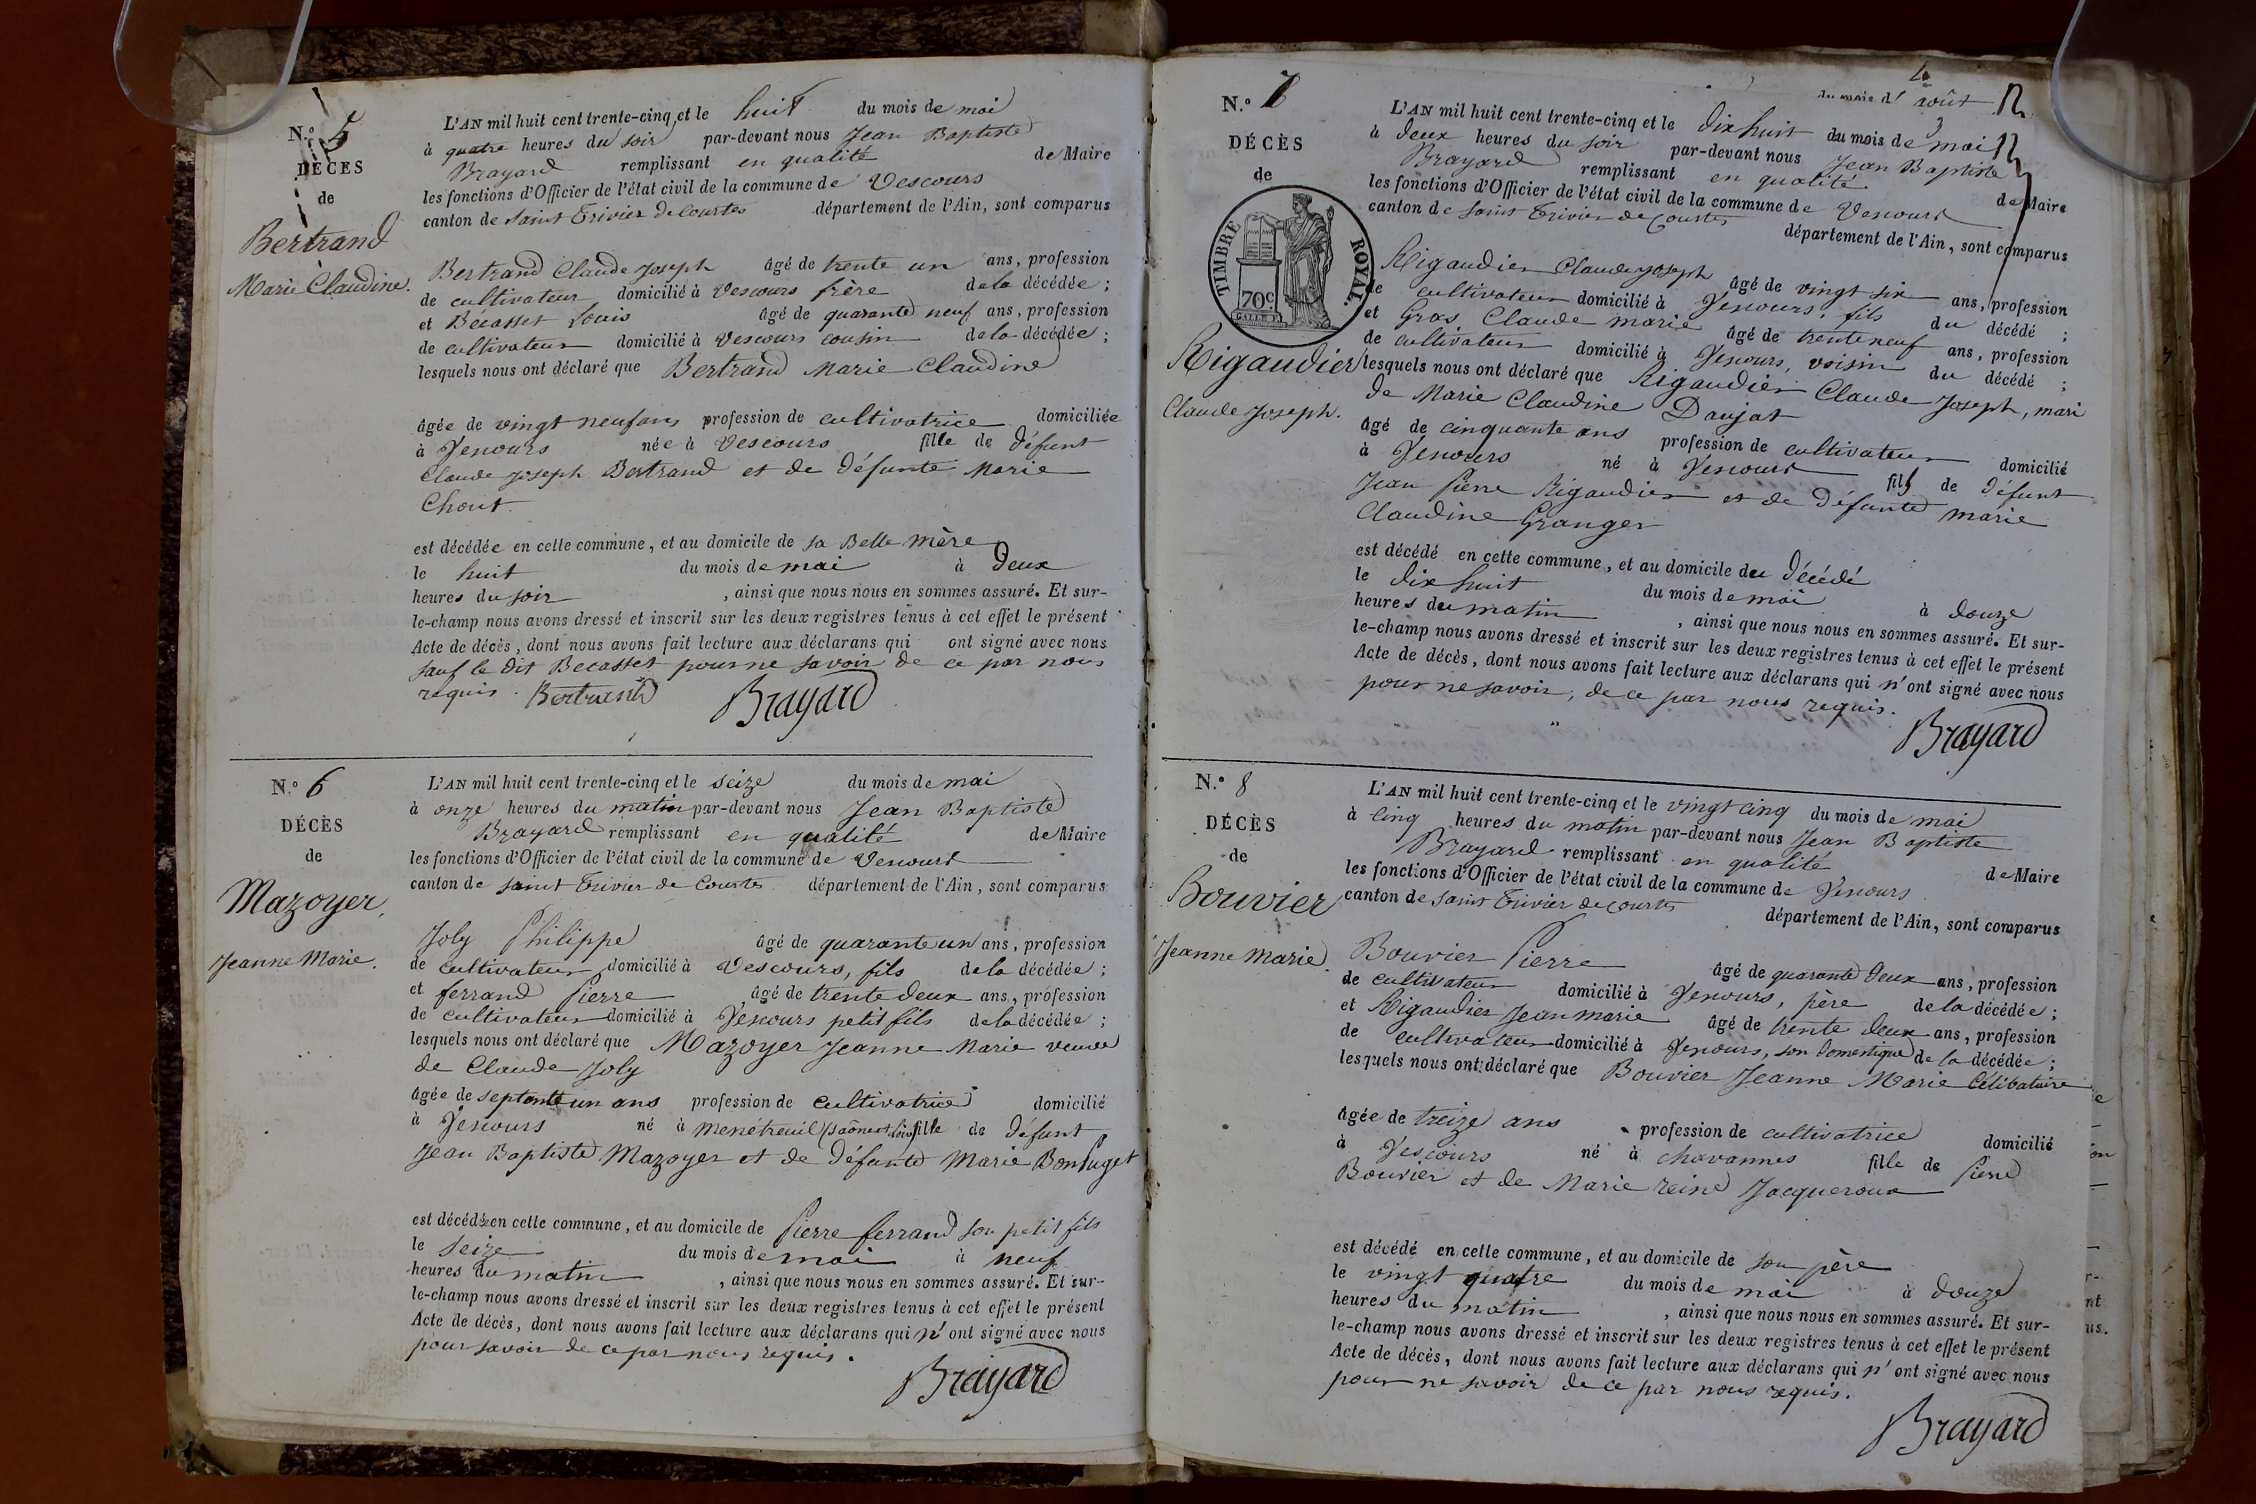 N.º 5
DÉCÈS
de
Bertrand
Marie Claudine.
L'AN mil huit cent trente-cinq et le huit du mois de mai
à quatre heures du soir par-devant nous Jean Baptiste
Brayard remplissant en qualité de Maire
les fonctions d'Officier de l'état civil de la commune de Vescours
canton de saint Trivier de Courtes département de l'Ain, sont comparus
Bertrand Claude Joseph âgé de trente un ans, profession
de cultivateur domicilié à Vescours frère de la décédée ;
et Bécasset Louis âgé de quarante neuf ans, profession
de cultivateur domicilié à Vescours cousin de la décédée ;
lesquels nous ont déclaré que Bertrand Marie Claudine
âgée de vingt neuf ans profession de cultivatrice domiciliée
à Vescours née à Vescours fille de défunt
Claude Joseph Bertrand et de défunte Marie
Chout.
est décédée en celle commune, et au domicile de sa Belle mère
le huit du mois de mai à deux
heures du soir , ainsi que nous nous en sommes assuré. Et sur-
le-champ nous avons dressé et inscrit sur les deux registres tenus à cet effet le présent
Acte de décès, dont nous avons fait lecture aux déclarans qui ont signé avec nous
sauf le dit Becasset pour ne savoir de ce par nous
requis. Bertrand Brayard
N.º 6
DÉCÈS
de
Mazoyer,
Jeanne Marie.
L'AN mil huit cent trente-cinq et le seize du mois de mai
à onze heures du matin par-devant nous Jean Baptiste
Brayard remplissant en qualité de Maire
les fonctions d'Officier de l'état civil de la commune de Vescours
canton de saint Trivier de Courtes département de l'Ain, sont comparus
Joly Philippe âgé de quarante un ans, profession
de cultivateur domicilié à Vescours, fils de la décédée ;
et ferrand Pierre âgé de trente deux ans, profession
de cultivateur domicilié à Vescours petit fils de la décédée ;
lesquels nous ont déclaré que Mazoyer Jeanne Marie veuve
de Claude Joly
âgée de septante un ans profession de cultivatrice domicilié
à Vescours né à menétreuil (saône et loire) fille de défunt
Jean Baptiste Mazoyer et de défunte Marie Bonfuget
est décédée en celle commune, et au domicile de Pierre ferrand son petit fils
le seize du mois de mai à neuf
heures du matin , ainsi que nous nous en sommes assuré. Et sur-
le-champ nous avons dressé et inscrit sur les deux registres tenus à cet effet le présent
Acte de décès, dont nous avons fait lecture aux déclarans qui n'ont signé avec nous
pour savoir de ce par nous requis.
Brayard
du mois d'août
N.º 7
DÉCÈS
de
TIMBRE ROYAL.
70c
Rigaudier
Claude Joseph.
L'AN mil huit cent trente-cinq et le dix huit du mois de mai
à deux heures du soir par-devant nous Jean Baptiste
Brayard remplissant en qualité de Maire
les fonctions d'Officier de l'état civil de la commune de Vescours
canton de saint Trivier de Courtes département de l'Ain, sont comparus
Rigaudier Claude Joseph âgé de vingt six ans, profession
de cultivateur domicilié à Vescours, fils du décédé ;
et Gras Claude marie âgé de trente neuf ans, profession
de cultivateur domicilié à Vescours, voisin du décédé ;
lesquels nous ont déclaré que Rigaudier Claude Joseph, mari
de Marie Claudine Daujat
âgé de cinquante ans profession de cultivateur domicilié
à Vescours né à Vescours fils de défunt
Jean Pierre Rigaudier et de défunte marie
Claudine Granger
est décédé en cette commune, et au domicile du décédé
le dix huit du mois de mai à douze
heures du matin , ainsi que nous nous en sommes assuré. Et sur-
le-champ nous avons dressé et inscrit sur les deux registres tenus à cet effet le présent
Acte de décès, dont nous avons fait lecture aux déclarans qui n'ont signé avec nous
pour ne savoir, de ce par nous requis.
Brayard
N.º 8
DÉCÈS
de
Bouvier
Jeanne Marie.
L'AN mil huit cent trente-cinq et le vingt cinq du mois de mai
à cinq heures du matin par-devant nous Jean Baptiste
Brayard remplissant en qualité de Maire
les fonctions d'Officier de l'état civil de la commune de Vescours
canton de saint Trivier de Courtes département de l'Ain, sont comparus
Bouvier Pierre âgé de quarante deux ans, profession
de cultivateur domicilié à Vescours, père de la décédée ;
et Rigaudier Jean marie âgé de trente deux ans, profession
de cultivateur domicilié à Vescours, son domestique de la décédée ;
lesquels nous ont déclaré que Bouvier Jeanne Marie Célibataire
âgée de treize ans profession de cultivatrice domicilié
à Vescours né à chavannes fille de Pierre
Bouvier et de Marie reine Jacqueroux
est décédé en celle commune, et au domicile de son père
le vingt quatre du mois de mai à douze
heures du matin , ainsi que nous nous en sommes assuré. Et sur-
le-champ nous avons dressé et inscrit sur les deux registres tenus à cet effet le présent
Acte de décès, dont nous avons fait lecture aux déclarans qui n'ont signé avec nous
pour ne savoir de ce par nous requis.
Brayard